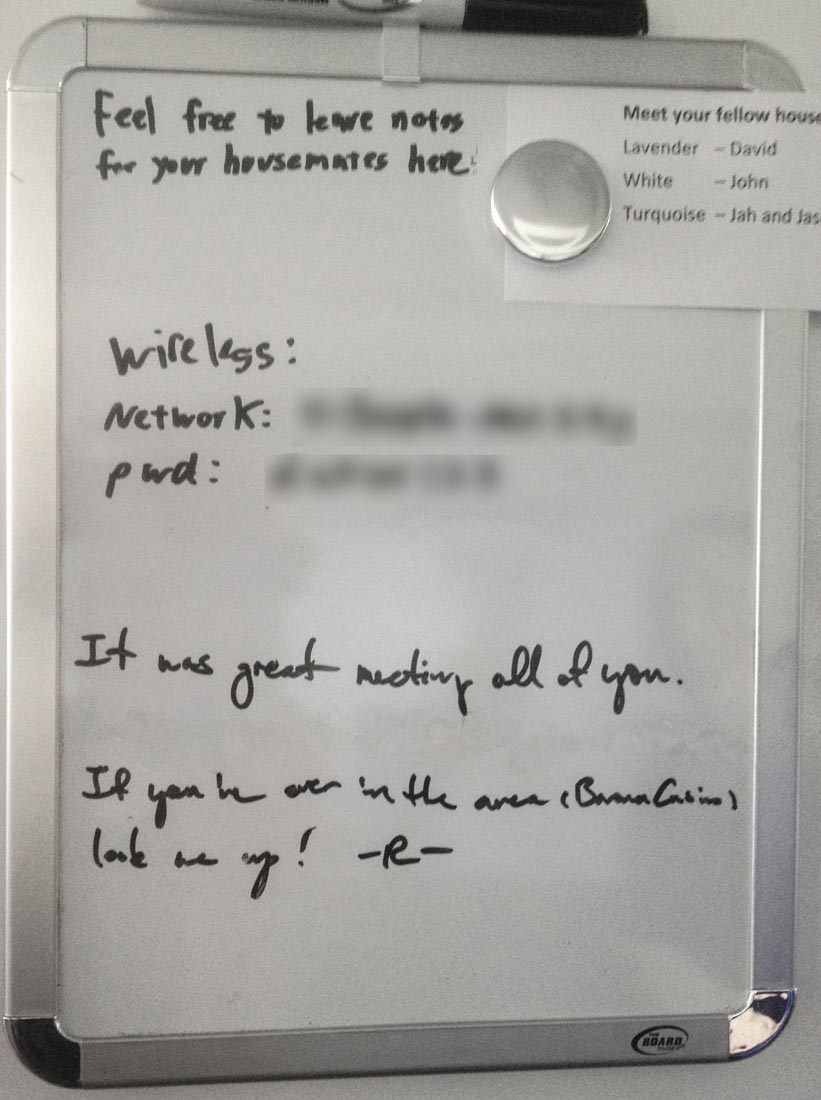 Feel free to leave notes
for your housemates here
Meet your fellow house
Lavender – David
White – John
Turquoise – Jah and Jas
Wireless:
Network:
pwd:
It was great meeting all of you.
If you're ever in the area
look me up! -R-
THE BOARD